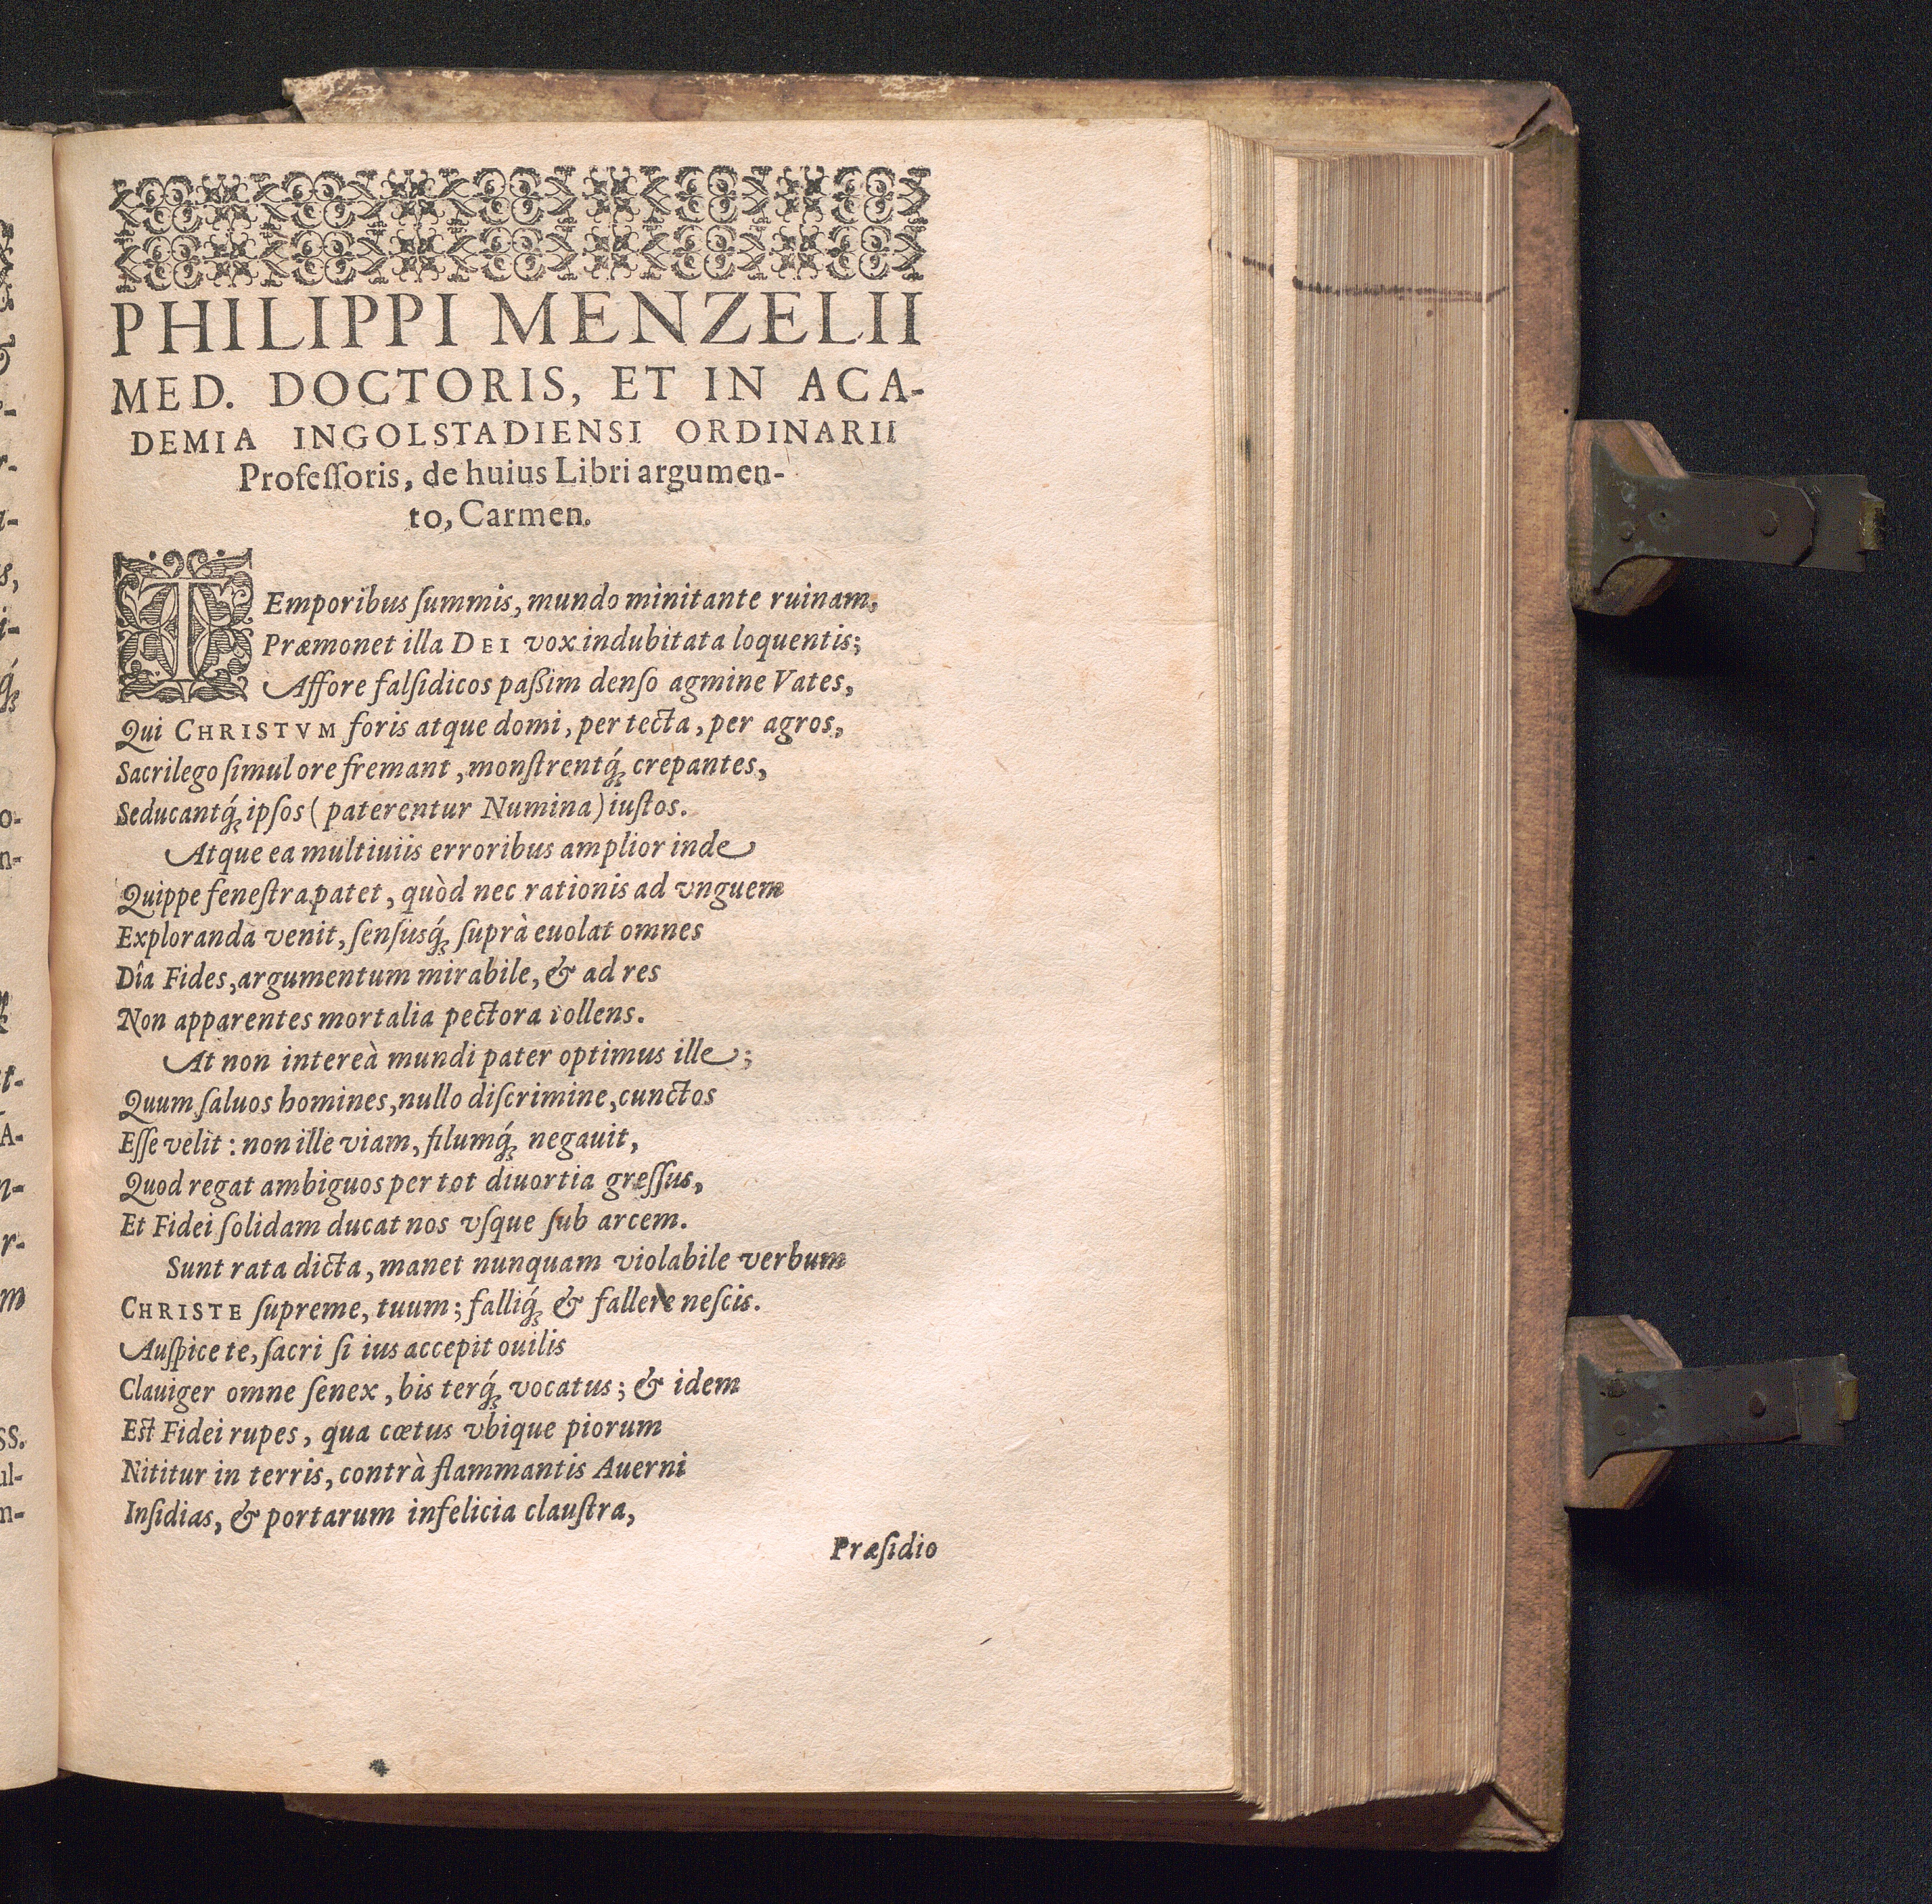 PHILIPPI MENZELII
MED. DOCTORIS, ET IN ACA-
DEMIA INGOLSTADIENSI ORDINARII
Profeſſoris, de huius Libri argumen-
to, Carmen.
TEmporibus ſummis, mundo minitante ruinam,
Præmonet illa DEI vox indubitata loquentis;
Affore falſidicos paßim denſo agmine Vates,
Qui CHRISTVM foris atque domi, per tecta, per agros,
Sacrilego ſimul ore fremant, monſtrentq́; crepantes,
Seducantq́; ipſos (paterentur Numina) iuſtos.
Atque ea multiuiis erroribus amplior inde
Quippe feneſtra patet, quòd nec rationis ad vnguem
Exploranda venit, ſenſusq́; suprà euolat omnes
Dîa Fides, argumentum mirabile, & ad res
Non apparentes mortalia pectora tollens.
At non intereà mundi pater optimus ille;
Quum ſaluos homines, nullo diſcrimine, cunctos
Eſſe velit: non ille viam, filumq́; negauit,
Quod regat ambiguos per tot diuortia greſſus,
Et Fidei ſolidam ducat nos vſque ſub arcem.
Sunt rata dicta, manet nunquam violabile verbum
CHRISTE ſupreme, tuum; falliq́; & fallere neſcis.
Auſpice te, ſacri ſi ius accepit ouilis
Clauiger omne ſenex, bis terq́; vocatus; & idem
Eſt Fidei rupes, qua cœtus vbique piorum
Nititur in terris, contrà flammantis Auerni
Inſidias, & portarum infelicia clauſtra,
Præſidio